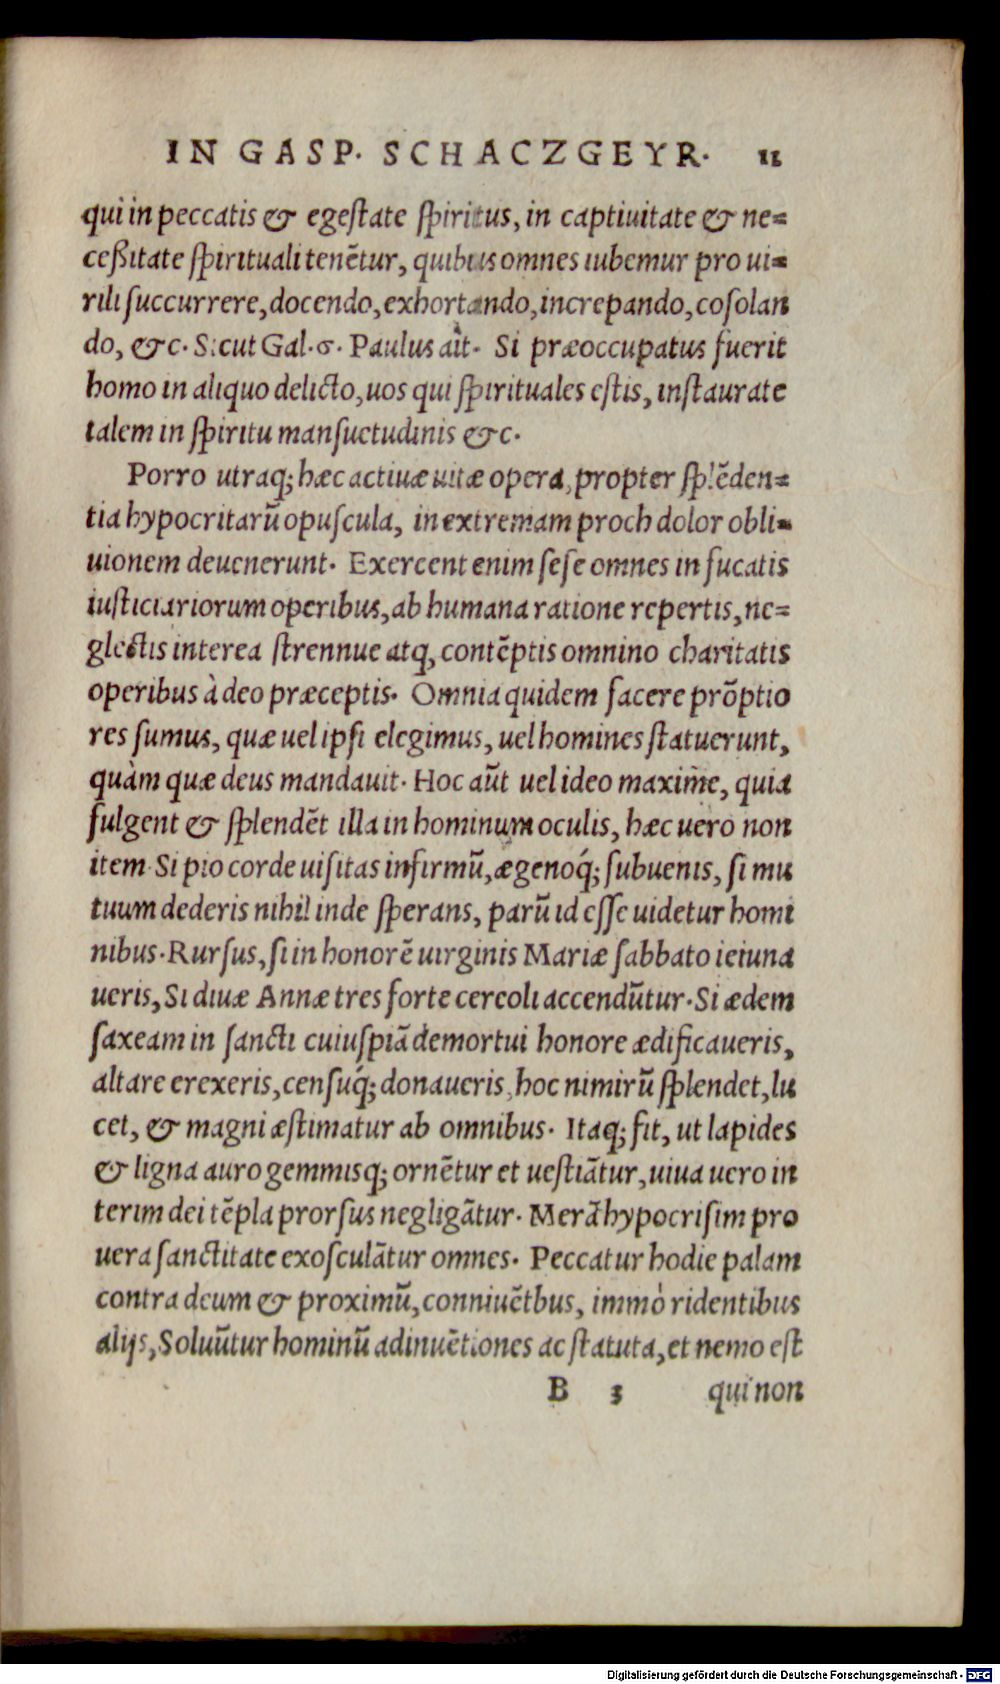 IN GASP. SCHACZGEYR. 11
qui in peccatis & egeſtate ſpiritus, in captiuitate & ne=
ceßitate ſpirituali tenẽtur, quibus omnes iubemur pro ui=
rili ſuccurrere, docendo, exhortando, increpando, coſolan
do, &c. Sicut Gal. 6. Paulus ait. Si præoccupatus fuerit
homo in aliquo delicto, uos qui ſpirituales eſtis, inſtaurate
talem in ſpiritu manſuetudinis &c.
Porro utraq; hæc actiuæ uitæ opera, propter ſplẽden=
tia hypocritarũ opuſcula, in extremam proch dolor obli=
uionem deuenerunt. Exercent enim ſeſe omnes in fucatis
iuſticiariorum operibus, ab humana ratione repertis, ne=
glectis interea ſtrennue atq, contẽptis omnino charitatis
operibus à deo præceptis. Omnia quidem facere prõptio
res ſumus, quæ uel ipſi elegimus, uel homines ſtatuerunt,
quàm quæ deus mandauit. Hoc aũt uel ideo maxime, quia
fulgent & ſplendẽt illa in hominum oculis, hæc uero non
item. Si pio corde uiſitas infirmũ, ægenoq́; ſubuenis, ſi mu
tuum dederis nihil inde ſperans, parũ id eſſe uidetur homi
nibus. Rurſus, ſi in honorẽ uirginis Mariæ ſabbato ieiuna
ueris, Si diuæ Annæ tres forte cereoli accendũtur. Si ædem
ſaxeam in ſancti cuiuſpiã demortui honore ædificaueris,
altare erexeris, cenſuq́; donaueris, hoc nimirũ ſplendet, lu
cet, & magni æſtimatur ab omnibus. Itaq; fit, ut lapides
& ligna auro gemmisq; ornẽtur et ueſtiãtur, uiua uero in
terim dei tẽpla prorſus negligãtur. Merã hypocriſim pro
uera ſanctitate exoſculãtur omnes. Peccatur hodie palam
contra deum & proximũ, conniuẽtbus, immò ridentibus
alijs, Soluũtur hominũ adinuẽtiones ac ſtatuta, et nemo eſt
B 3 qui non
Digitalisierung gefördert durch die Deutsche Forschungsgemeinschaft - DFG